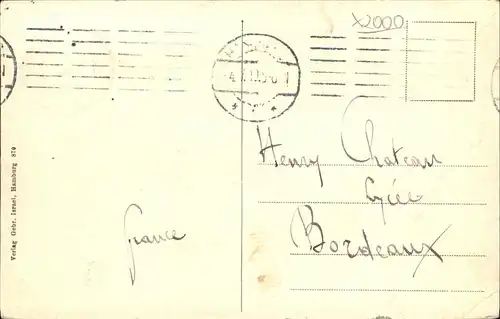 x2000
Henry Chateau
Lycée
Bordeaux
france
Verlag Gebr. Israel, Hamburg 870